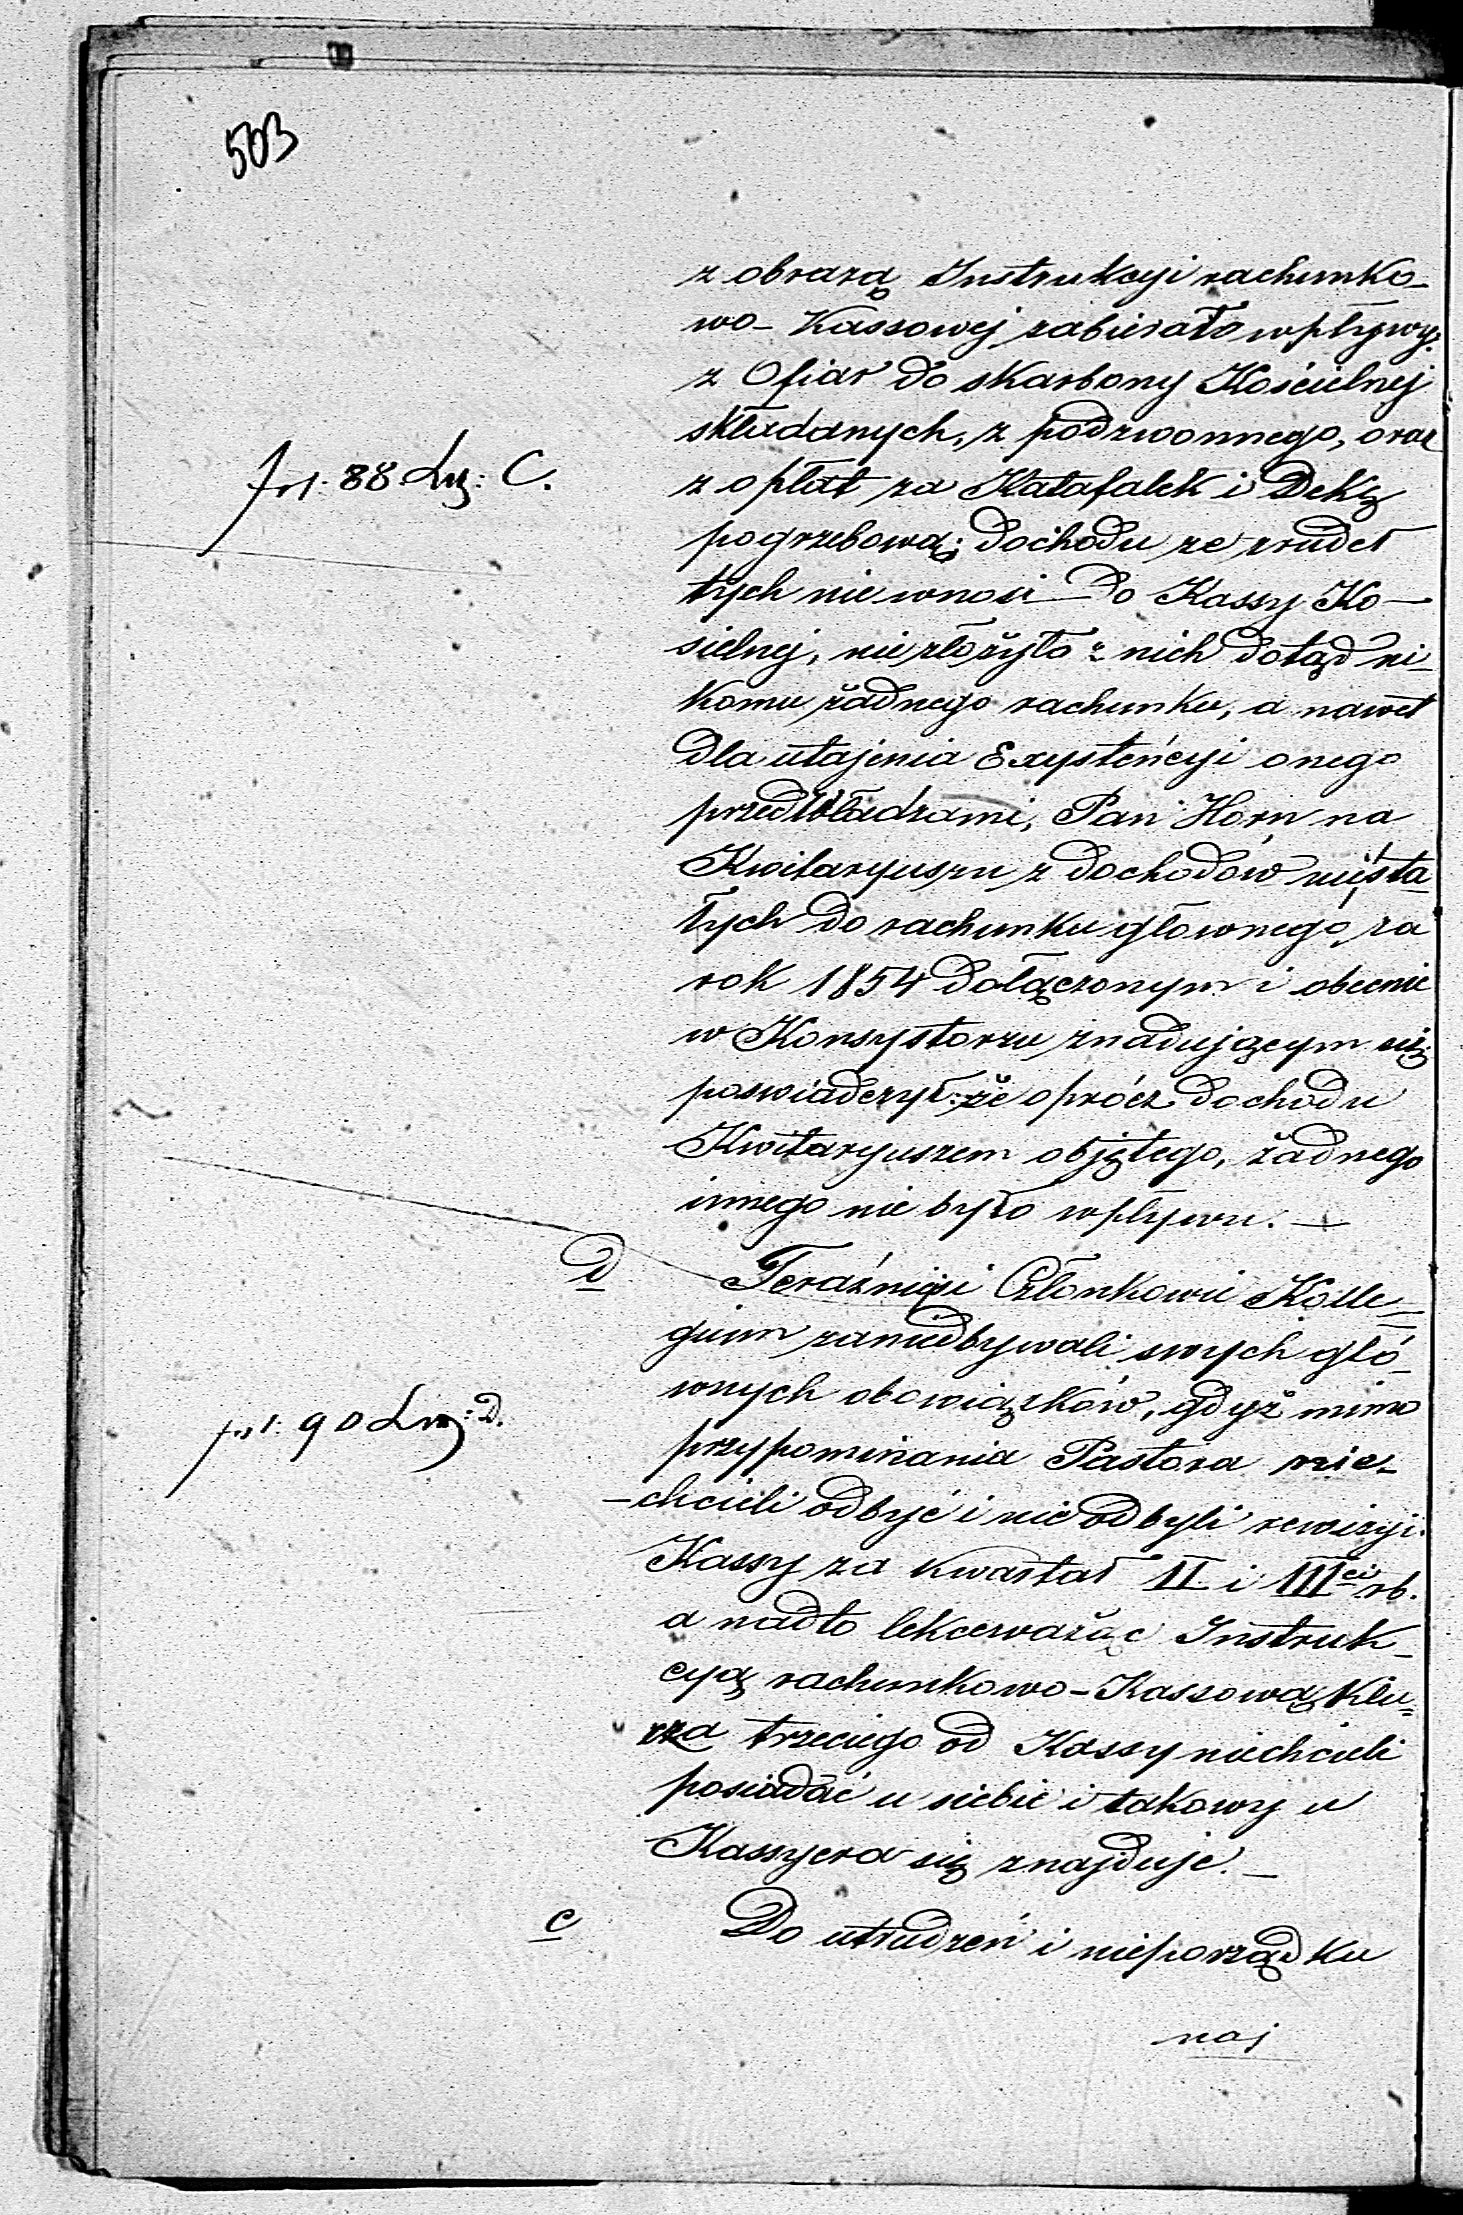 503
z obrazą Instrukcyi rachunko-
wo-Kassowej zabierało wpływy
z Ofiar do skarbony Kościelnej
składanych, z podzwonnego, oraz
fol. 88 Lit: C.
z opłat za Katafalek i Dekę
pogrzebową; dochodu ze źrudeł
tych nie wnosi do Kassy Ko-
sielnej, nie złożyło z nich dotąd ni-
komu żadnego rachunku, a nawet
dla utajenia Exystencyi onego
przed Władzami, Pan Horn na
Kwitaryuszu z dochodów niesta-
łych do rachunku głównego za
rok 1854 dołączonym i obecnie
w Konsystorzu znadującym się
poswiadczył: że oprócz dochodu
Kwitaryuszem objętego, żadnego
innego nie było wpływu. —
D Teraźniejsi Członkowie Kolle-
gium zaniedbywali swych głó-
wnych obowiązków, gdyż mimo
fol: 90 Lit: D.
przypominania Pastora nie-
-chcieli odbyć i nie odbyli rewizyi
Kassy za kwartał II i III ci rb.
a nadto lekceważąc Instruk-
cyą rachunkowo-Kassową Klu-
cza trzeciego od Kassy niechcieli
posiadać u siebie i takowy u
Kassyera się znajduje. —
e Do utrudzeń i nieporządku
naj